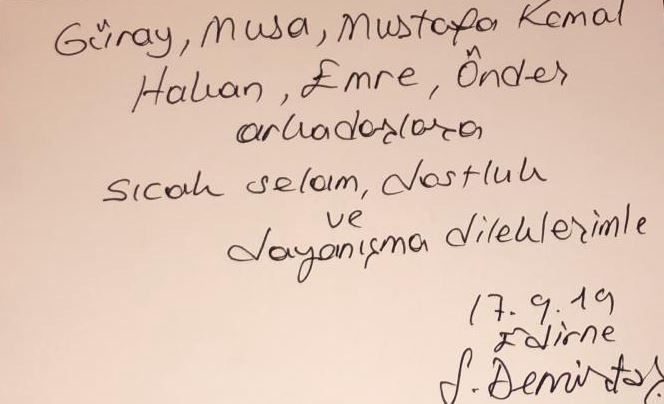 Güray, Musa, Mustafa Kemal
Hakan, Emre, Önder
arkadaşlara
sıcak selam, dostluk
ve
dayanışma dileklerimle
17.9.19
Edirne
S. Demirtaş